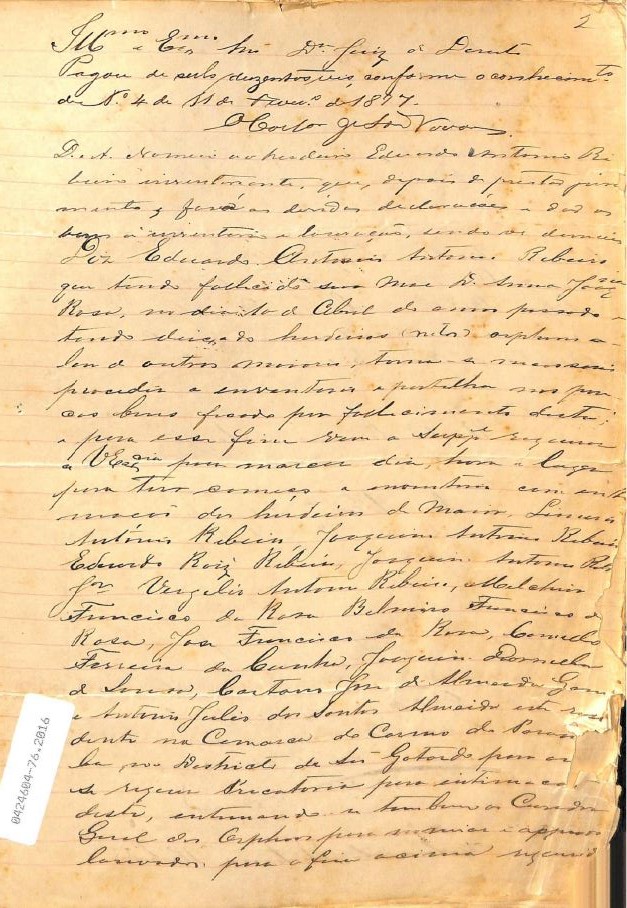 2
Illmo e Exmo Snr Dr Juiz de Direito
Pagou de sello duzentos reis, conforme o conhecimto
de No 4 de 11 de de 1897.
D. A. Nomeio ao herdeiro Eduardo Antonio Ri
beiro inventariante, que, depois de prestar jura
mento, fará as devidas declarações e dará os
bens a inventario e louvação, sendo
Diz Eduardo Antonio Ribeiro
que tendo fallecido sua Mae D. Anna Joaqna
Rosa, no de Abril do anno passado e
tendo deixado herdeiros (netos) orphãos a
lem de outros maiores, torna-se necessario
proceder a inventario e partilha nos pou
cos bens ficado por fallecimento desta;
e para esse fim vem o Suppe requerer
a VExcia para marcar dia, hora e lugar
para ter começo o inventario com inti
mação dos herdeiros de Maior,
Antonio Ribeiro, Joaquim Antonio Ribeiro
Eduardo Roiz Ribeiro, Joaquim Antonio Ribo
Vergilio Antonio Ribeiro,
Francisco da Rosa Belmiro Francisco da
Rosa, José Francisco da Rosa,
Ferreira da Cunha, Joaquim
de Souza, Caetano José de Almeida
e Antonio Julio dos Santos Almeida este resi
dente na Comarca do Carmo do Parana
ba, no Districto de São Gotardo para on
se requer Precatoria para intimação
deste, intimando-se tambem o Curador
Geral dos Orphãos para nomiar e approvar
louvados para o fim acima requerido
0424604-76.2016